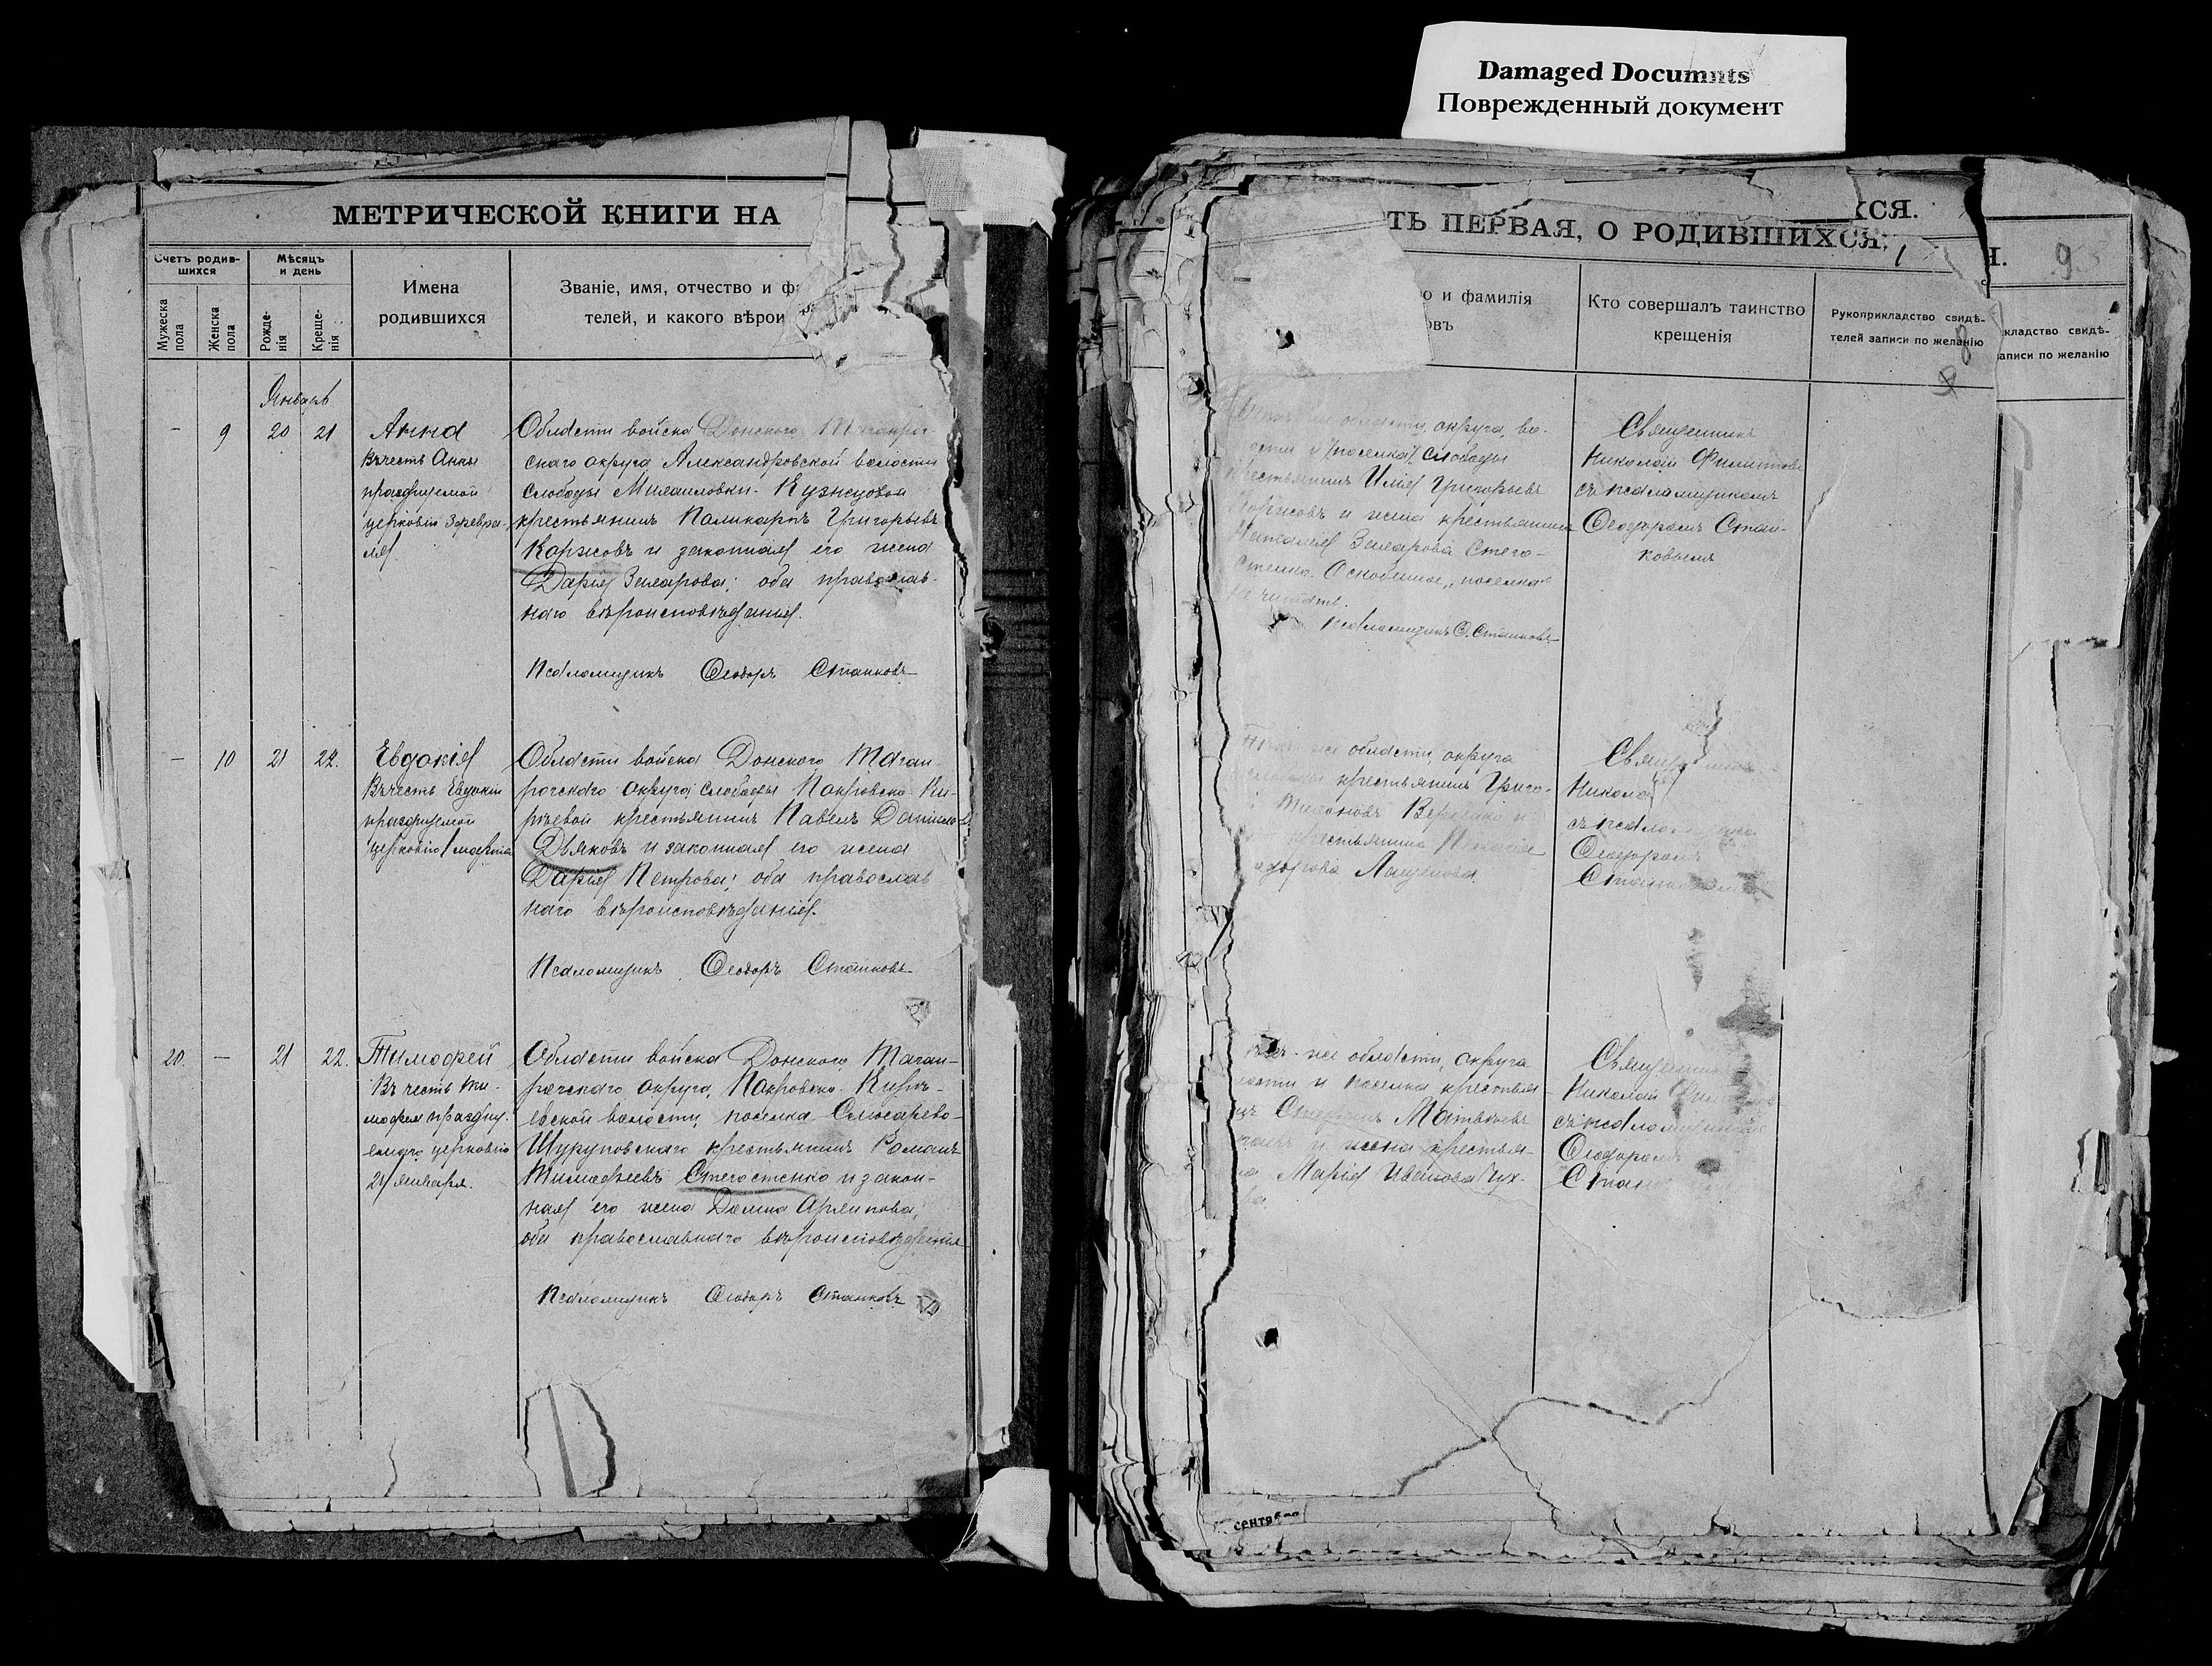 Damaged Documnts
Поврежденный документ
МЕТРИЧЕСКОЙ КНИГИ НА
Счетъ родив-
шихся
Мѣсяцъ
и день
Мужеска
пола
Женска
пола
Рожде-
нія
Креще-
нія
Имена
родившихся
Званіе, имя, отчество и фа
телей, и какого вѣрои
Январь
- 9 20 21
Анна
Въ честь Анны
празднуемой
церковію 3 февра-
ля
Области войска Донского Таганрог-
скаго округа, Александровской волости
слободы
крестьянинъ Поликарпъ Григорьевъ
Коржовъ и законная его жена
Дарія Захарова; оба православ-
наго вѣроисповѣданія.
Псаломщикъ Ѳеодоръ Станковъ
- 10 21 22.
Евдокія
Въ честь Евдокіи
празднуемой
церковію 1 марта
Области войска Донского Таган-
рогскаго округа, слободы Покровско-Ки-
рѣевой крестьянинъ Павелъ Данилов
Дьяковъ и законная его жена
Дарія Петрова; оба православ
наго вѣроисповѣданія.
Псаломщикъ Ѳеодоръ Станковъ
20. - 21 22.
Тимофей
Въ честь Ти-
мофея праздну-
емаго церковію
24 января.
Области войска Донского, Таган-
рогскаго округа, Покровско-Кирѣ-
евской волости, поселка Слюсарево-
Шуруповскаго крестьянинъ Романъ
Тимофеевъ Стегостенко и закон-
ная его жена Домна Архипова;
оба православнаго вѣроисповѣданія
Псаломщикъ Ѳеодоръ Станковъ
ТЬ ПЕРВАЯ, О РОДИВШИХСЯ.
ХСЯ.
Я.
9
о и фамилія
овъ
Кто совершалъ таинство
крещенія
Рукоприкладство свидѣ-
телей записи по желанію
кладство свидѣ-
аписи по желанію
8
области, округа, во-
лости и "поселка" слободы
крестьянинъ Илія Григорьевъ
Коржовъ и жена крестьянина
Наталія Захарова Стего-
стенко. Оскобленное "поселка"
не читать.
Псаломщикъ Ѳ. Станковъ
Священникъ
Николай Филиппов
съ псаломщикомъ
Ѳеодоромъ Стан-
ковымъ
же области, округа
крестьянинъ Григо-
крестьянина
Священник
Никола
съ псалом
Ѳеодоромъ
Станко
же области, округа
лости и поселка крестьян
Стефанъ Матвѣевъ
и жена крестьян-
Марія Иванова Чух-
Священник
Николай
съ псаломщиком
Ѳеодоромъ
Стан
сентября